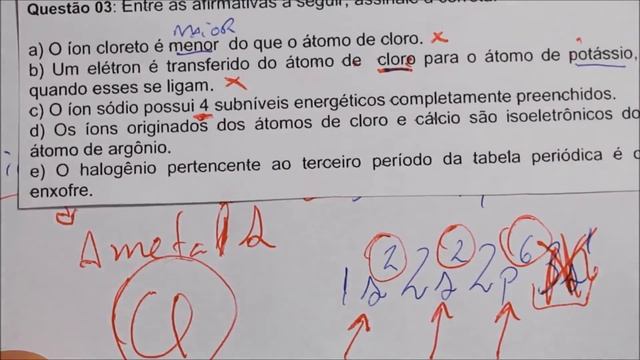 Questão 03: Entre as afirmativas a seguir, assinale a correta.
maior
a) O íon cloreto é menor do que o átomo de cloro. x
b) Um elétron é transferido do átomo de cloro para o átomo de potássio,
quando esses se ligam. x
c) O íon sódio possui 4 subníveis energéticos completamente preenchidos.
d) Os íons originados dos átomos de cloro e cálcio são isoeletrônicos do
átomo de argônio.
e) O halogênio pertencente ao terceiro período da tabela periódica é o
enxofre.
Ametal
1s2 2s2 2p6
Cl